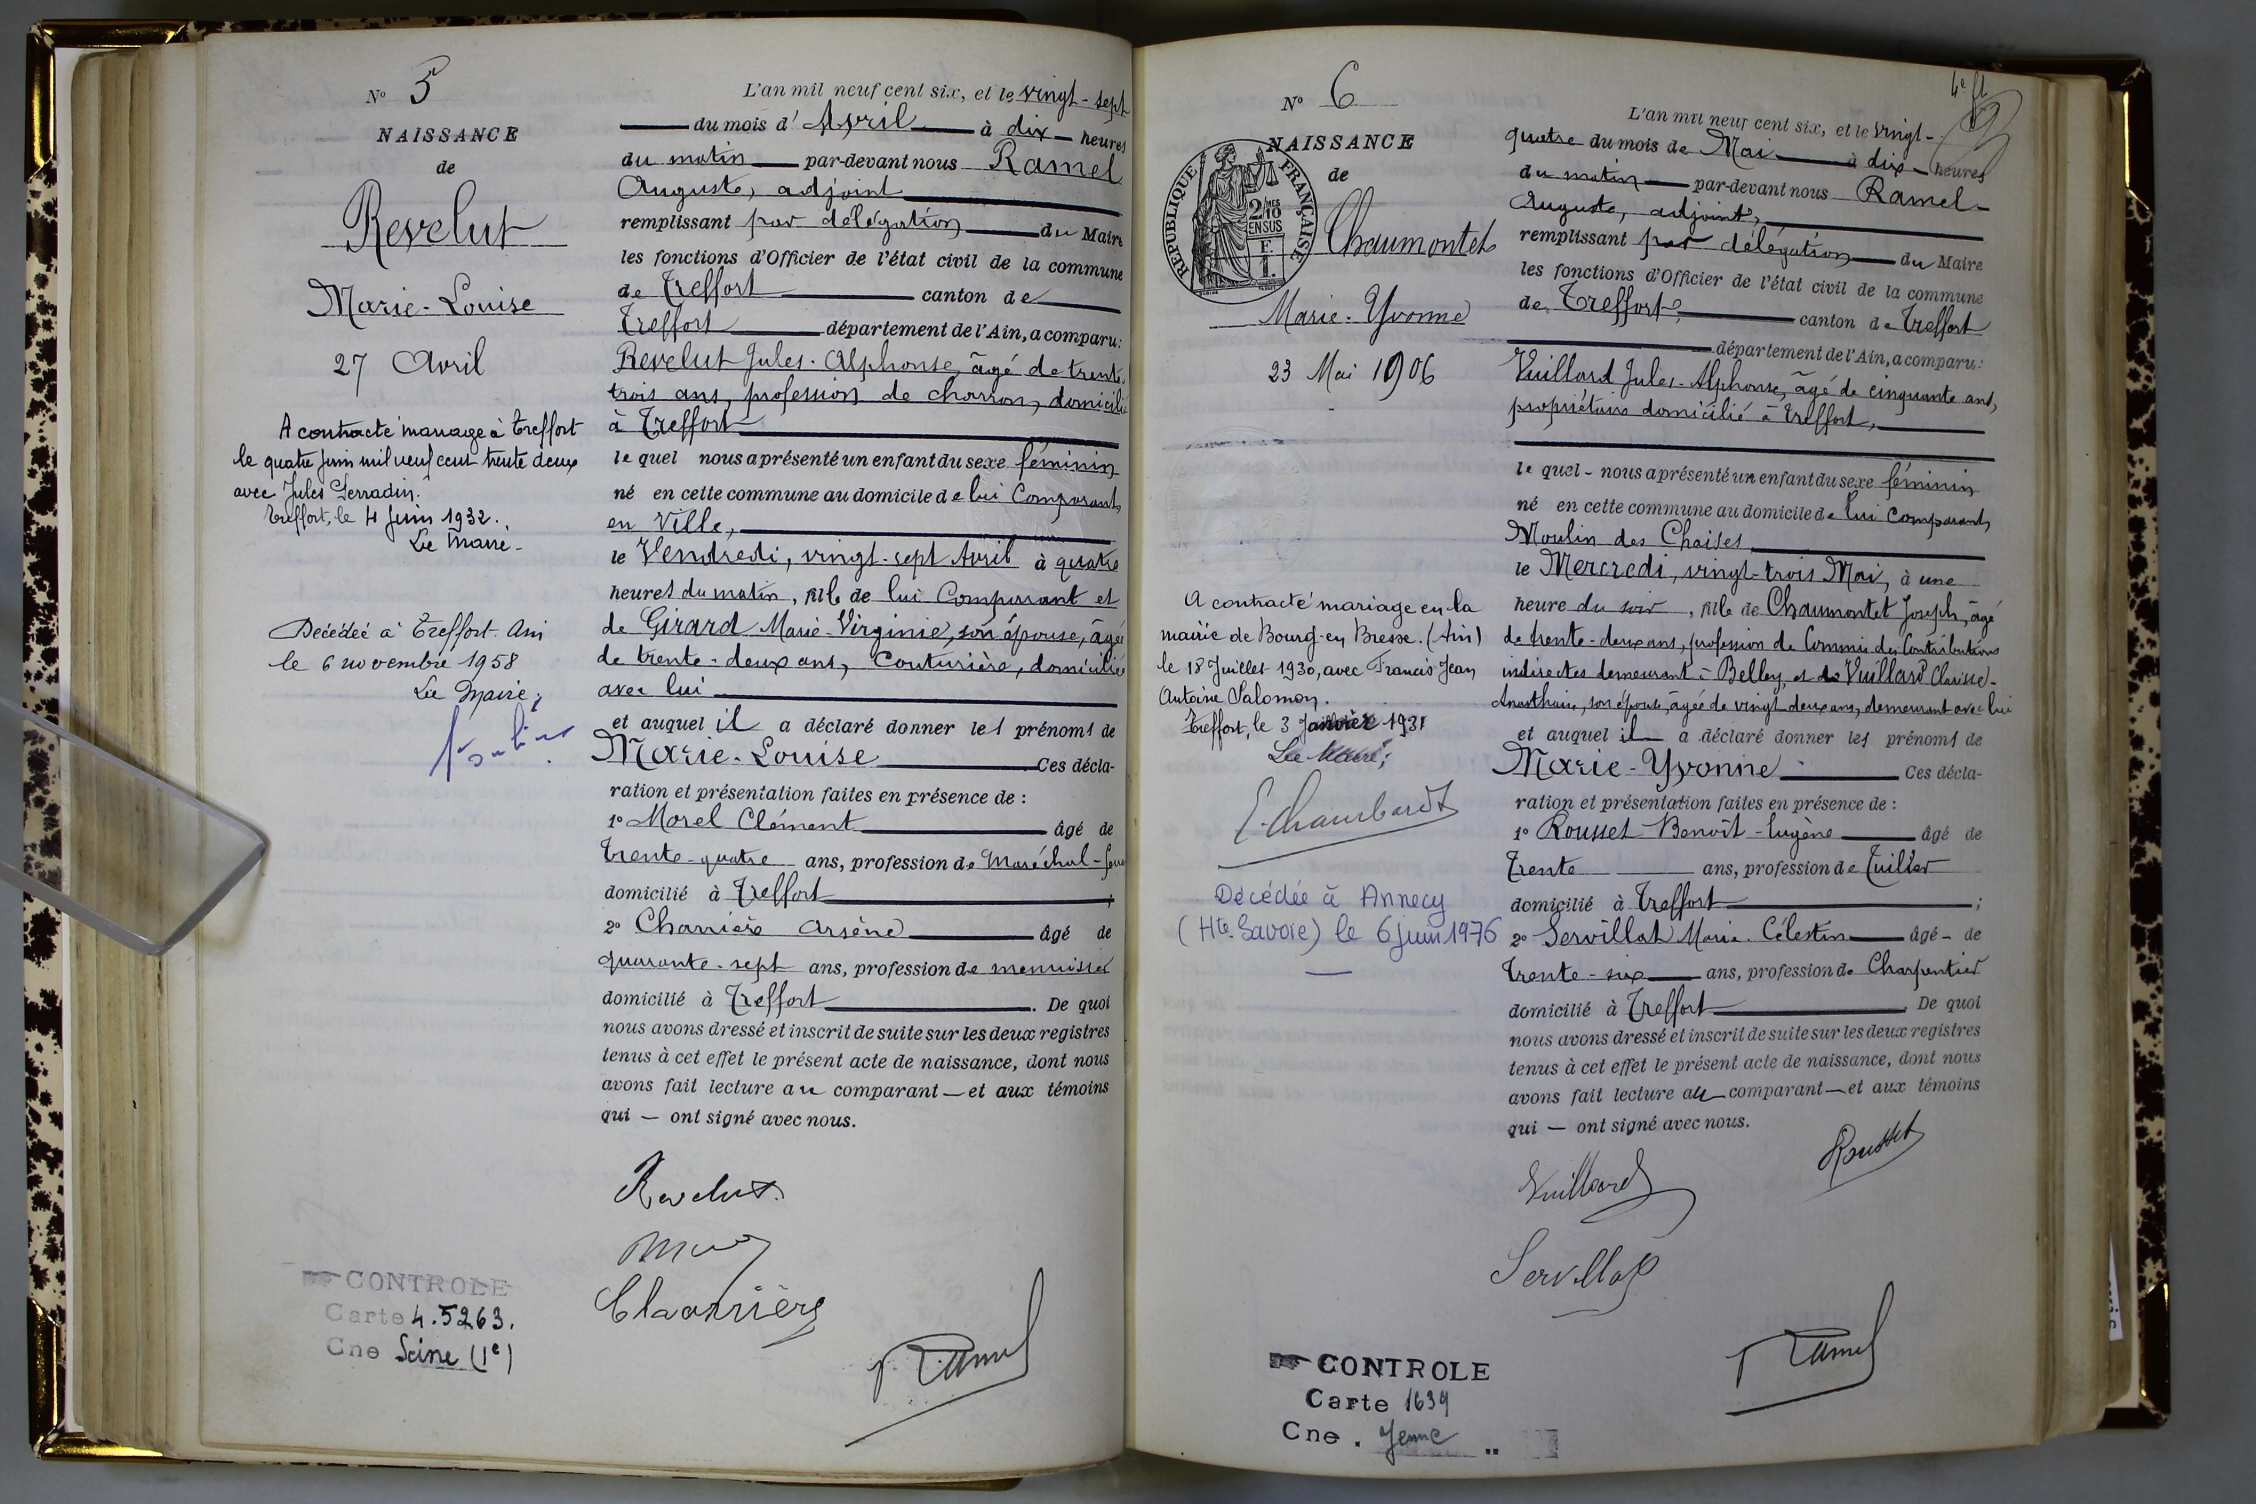 N° 5
NAISSANCE
de
Revelut
Marie-Louise
27 Avril
A contracté mariage à Treffort
le quatre juin mil neuf cent trente deux
avec Jules Perradin.
Treffort, le 4 Juin 1932.
Le Maire
Décédée à Treffort-Ain
le 6 novembre 1958
Le Maire;
CONTROLE
Carte 4.5263.
Cne Seine (1e)
L'an mil neuf cent six, et le vingt-sept
du mois d'Avril à dix heures
du matin par-devant nous Ramel
Auguste, adjoint
remplissant par délégation du Maire
les fonctions d'Officier de l'état civil de la commune
de Treffort canton de
Treffort département de l'Ain, a comparu:
Revelut Jules-Alphonse, âgé de trente-
trois ans, profession de charron, domicilié
à Treffort
lequel nous a présenté un enfant du sexe féminin
né en cette commune au domicile de lui Comparant,
en Ville,
le Vendredi, vingt-sept Avril à quatre
heures du matin, fille de lui Comparant et
de Girard Marie-Virginie, son épouse, âgée
de trente-deux ans, Couturière, domiciliée
avec lui
et auquel il a déclaré donner les prénoms de
Marie-Louise Ces décla-
ration et présentation faites en présence de :
1° Morel Clément âgé de
trente-quatre ans, profession de Maréchal-ferr
domicilié à Treffort ;
2° Charrière Arsène âgé de
quarante-sept ans, profession de menuisier
domicilié à Treffort. De quoi
nous avons dressé et inscrit de suite sur les deux registres
tenus à cet effet le présent acte de naissance, dont nous
avons fait lecture au comparant — et aux témoins
qui — ont signé avec nous.
Revelut
Charrière
Ramel
N° 6
NAISSANCE
de
REPUBLIQUE FRANÇAISE
2/10 MES
EN SUS
F.
1.
Chaumontet
Marie-Yvonne
23 Mai 1906
A contracté mariage en la
mairie de Bourg-en-Bresse. (Ain)
le 18 Juillet 1930, avec Francis Jean
Antoine Salomon.
Treffort, le 3 Janvier 1931
Le Maire;
E. Chambardt
Décédée à Annecy
(Hte Savoie) le 6 juin 1976
CONTROLE
Carte 1639
Cne . Yenne
4e ft
L'an mil neuf cent six, et le vingt-
quatre du mois de Mai à dix heures
du matin par-devant nous Ramel
Auguste, adjoint,
remplissant par délégation du Maire
les fonctions d'Officier de l'état civil de la commune
de Treffort, canton de Treffort
département de l'Ain, a comparu:
Vuillard Jules-Alphonse, âgé de cinquante ans,
propriétaire domicilié à Treffort,
lequel - nous a présenté un enfant du sexe féminin
né en cette commune au domicile de lui comparant,
Moulin des Chaises
le Mercredi, vingt-trois Mai, à une
heure du soir, fille de Chaumontet Joseph, âgé
de trente-deux ans, profession de Commis des Contributions
indirectes demeurant à Belley, et de Vuillard Clarisse-
Anasthasie, son épouse, âgée de vingt deux ans, demeurant avec lui
et auquel il a déclaré donner les prénoms de
Marie-Yvonne Ces décla-
ration et présentation faites en présence de :
1° Rousset Benoît-Eugène âgé de
trente ans, profession de Tuilier
domicilié à Treffort ;
2° Servillat Marie-Célestin âgé - de
trente-six ans, profession de Charpentier
domicilié à Treffort De quoi
nous avons dressé et inscrit de suite sur les deux registres
tenus à cet effet le présent acte de naissance, dont nous
avons fait lecture au comparant — et aux témoins
qui — ont signé avec nous.
Rousset
Vuillard
Servillat
Ramel